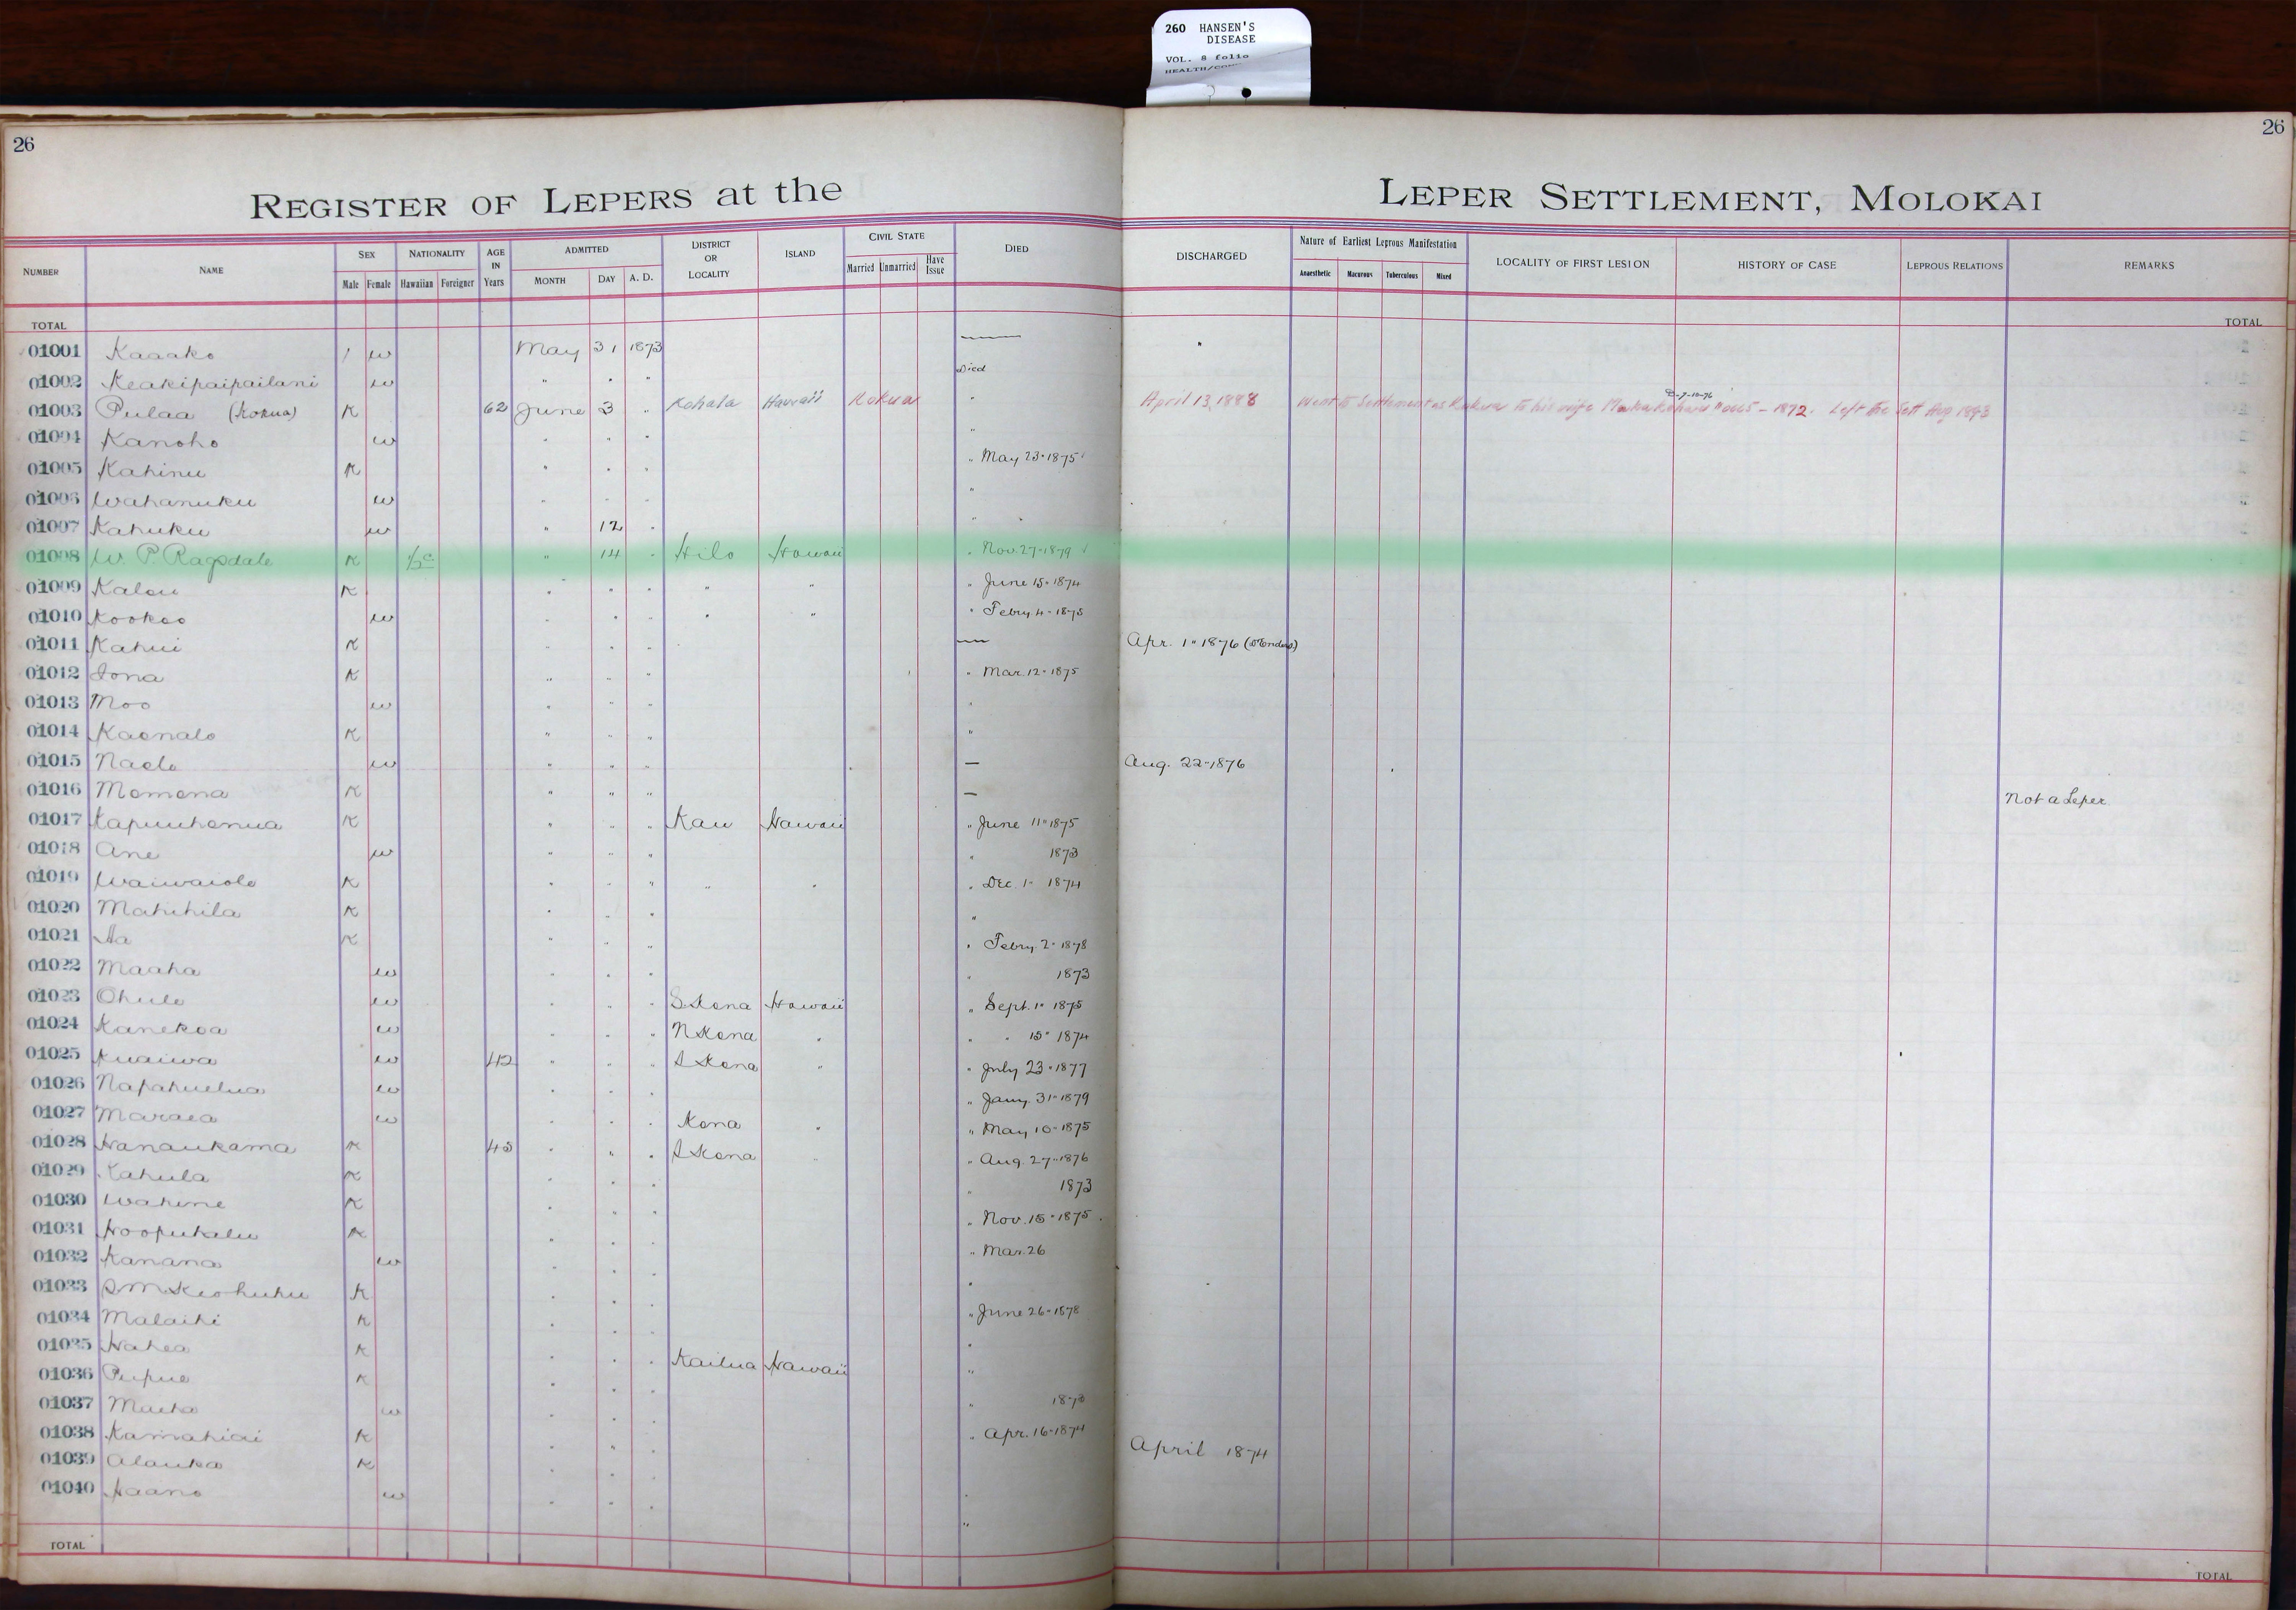 260 HANSEN'S
DISEASE
VOL. 8 folio
HEALTH/COM
26
26
REGISTER OF LEPERS at the LEPER SETTLEMENT, MOLOKAI
NUMBER NAME SEX NATIONALITY AGE IN Years ADMITTED DISTRICT OR LOCALITY ISLAND CIVIL STATE DIED DISCHARGED Nature of Earliest Leprous Manifestation LOCALITY OF FIRST LESION HISTORY OF CASE LEPROUS RELATIONS REMARKS
Male Female Hawaiian Foreigner MONTH DAY A. D. Married Unmarried Have Issue Anaesthetic Macurous Tuberculous Mixed
TOTAL TOTAL
01001 Kaaako / w May 31 1873 — "
01002 Keakipaipailani w " " " Died
01003 Pulaa (Kokua) K 62 June 3 " Kohala Hawaii Kokua " April 13, 1888 Went to Settlement as Kokua to his wife 1872. Left the Sett Aug 1893
D-7-10-76
01004 Kanoho w " " " "
01005 Kahinu K " " " " May 23·1875
01006 Wahanuku w " " " "
01007 Kahuku w " 12 " "
01008 W. P. Ragsdale K 1/2c " 14 " Hilo Hawaii " Nov. 27-1879 ✓
01009 Kalou K " " " " " " June 15-1874
01010 Kookoo w " " " " " " Febry 4-1875
01011 Kahui K " " " — Apr. 1" 1876
01012 Iona K " " " " Mar. 12-1875
01013 Moo w " " " "
01014 Kaonalo K " " " "
01015 Naolo w " " " — Aug. 22-1876
01016 Momona K " " " — Not a Leper
01017 Kapuuhonua K " " " Kau Hawaii " June 11" 1875
01018 Ane w " " " " 1873
01019 Waiwaiole K " " " " " " Dec. 1- 1874
01020 Mahihila K " " " "
01021 Aa K " " " " Febry. 2- 1878
01022 Maaha w " " " " 1873
01023 Ohule w " " " S. Kona Hawaii " Sept. 1" 1875
01024 Kanekoa w " " " N Kona " " " 15" 1874
01025 Kuaiwa w 42 " " " S Kona " " July 23-1877
01026 Napahuelua w " " " " Jany. 31-1879
01027 Maraea w " " " Kona " " May 10-1875
01028 Hanaukama K 45 " " " S Kona " " Aug. 27-1876
01029 Kahula K " " " " 1873
01030 Wahine K " " " " Nov. 15-1875
01031 Hoopukalu K " " " " Mar. 26
01032 Kanana w " " " "
01033 S M Keohuhu K " " " " June 26-1878
01034 Malaihi K " " " "
01035 Hahea K " " " Kailua Hawaii "
01036 Pupue K " " " " 1873
01037 Maeha w " " " " Apr. 16-1874
01038 Kamahiai K " " " April 1874
01039 Alauka K " " " "
01040 Haano w " " " "
TOTAL TOTAL